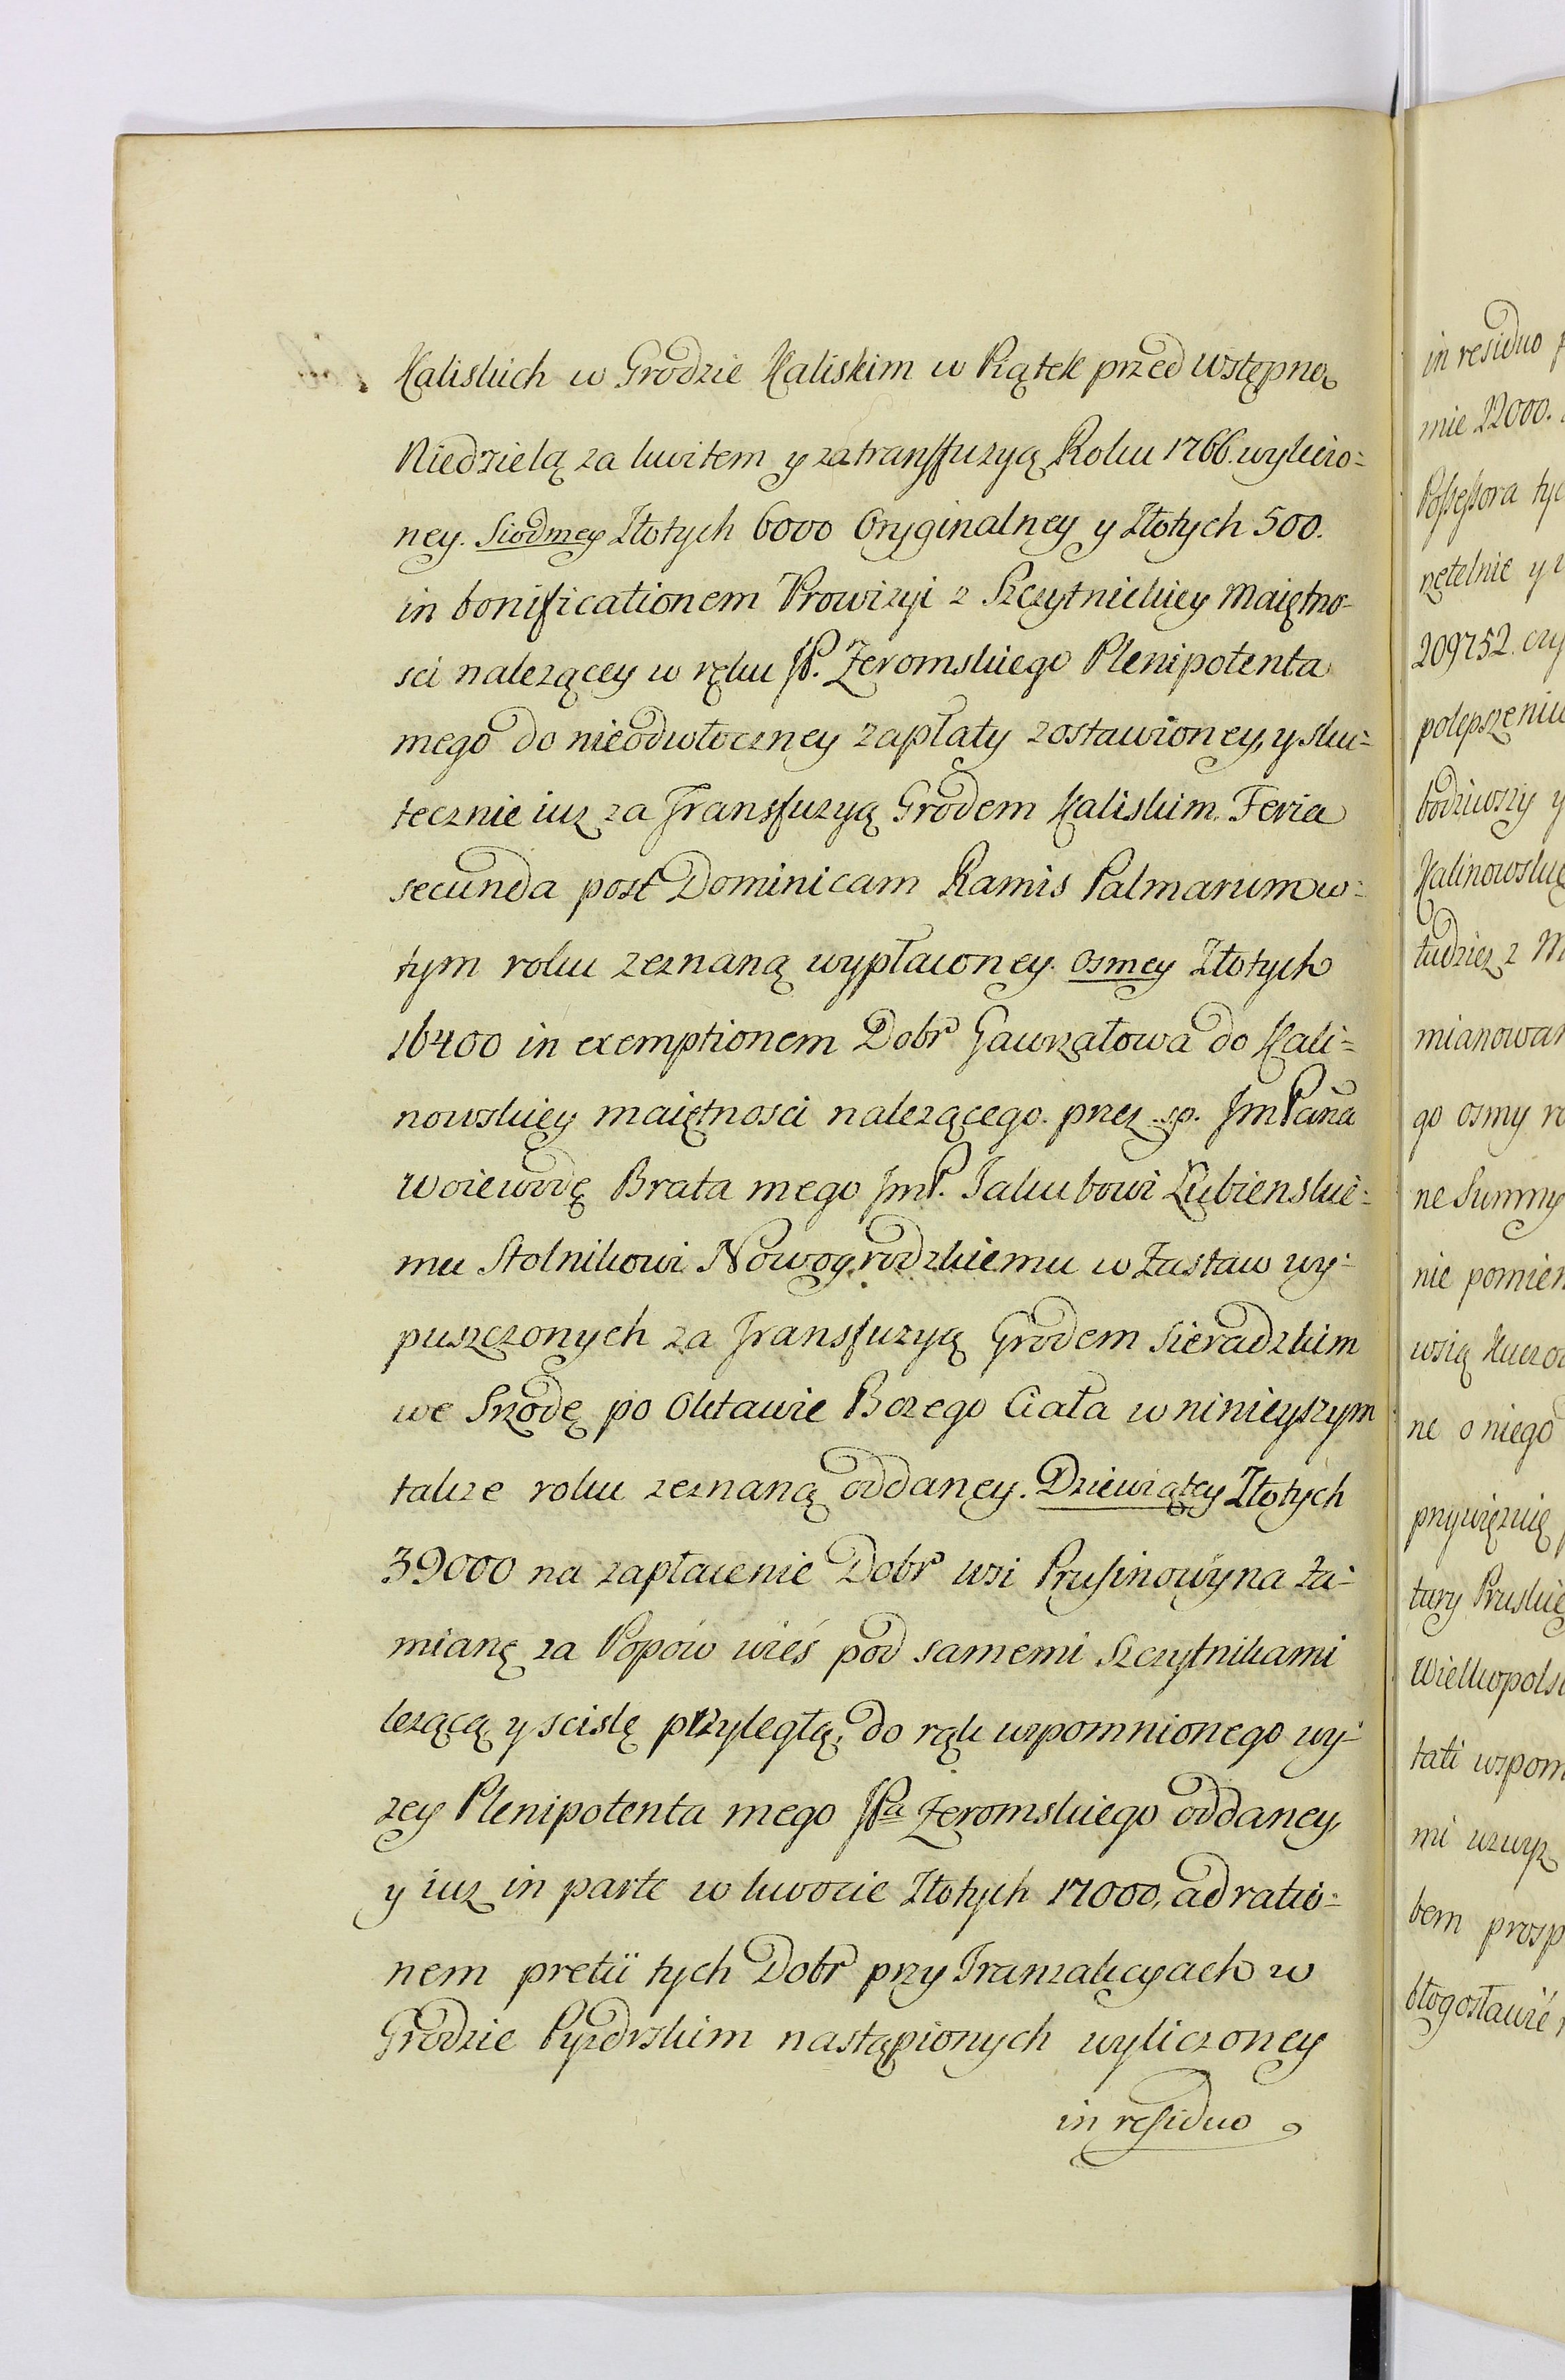 Kaliskich w Grodzie Kaliskim w Piątek przed wstępną
Niedzielą za kwitem y za transfuzyą Roku 1766. wyliczo=
ney. Siodmey Złotych 6000 Oryginalney y Złotych 500.
in bonificationem Prowizyi z Szczytnickiey Maiętno-
sci nalezącey w ręku JP. Zeromskiego Plenipotenta
mego do nieodwłoczney zapłaty zostawioney, y sku=
tecznie iuz za Transfuzyą Grodem Kaliskim. Feria
secunda post Dominicam Ramis Palmarum w=
tym roku zeznaną wypłaconey. Osmey Złotych
16400 in exemptionem Dobr Gawrzałowa do Kali=
nowskiey maiętnosci nalezącego. przez s.p. JmPana
Woiewodę Brata mego JmP. Jakubowi Łubienskie=
mu Stolnikowi Nowogrodzkiemu w Zastaw wy=
puszczonych za Transfuzyą Grodem Sieradzkim
we Srzodę po Oktawie Bozego Ciała w ninieyszym
takze roku zeznaną oddaney. Dziewiątey Złotych
39000 na zapłacenie Dobr wsi Prusinowy na Za=
mianę za Popów wieś pod samemi Szczytnikami
lezącą y scisle przyległą, do rąk wspomnionego wy=
zey Plenipotenta mego JPa Zeromskiego oddaney,
y iuz in parte w kwocie Złotych 17000, ad ratio=
nem pretii tych Dobr przy Tranzakcyach w
Grodzie Pyzdrskim nastąpionych wyliczoney
in residuo
in residuo
mie 22000.
Possessora
rzetelnie y
209752.
bodziwszy y
tudziez z
go osmy
ne Summy
nie
wsią
ne o niego
tati
mi
bem